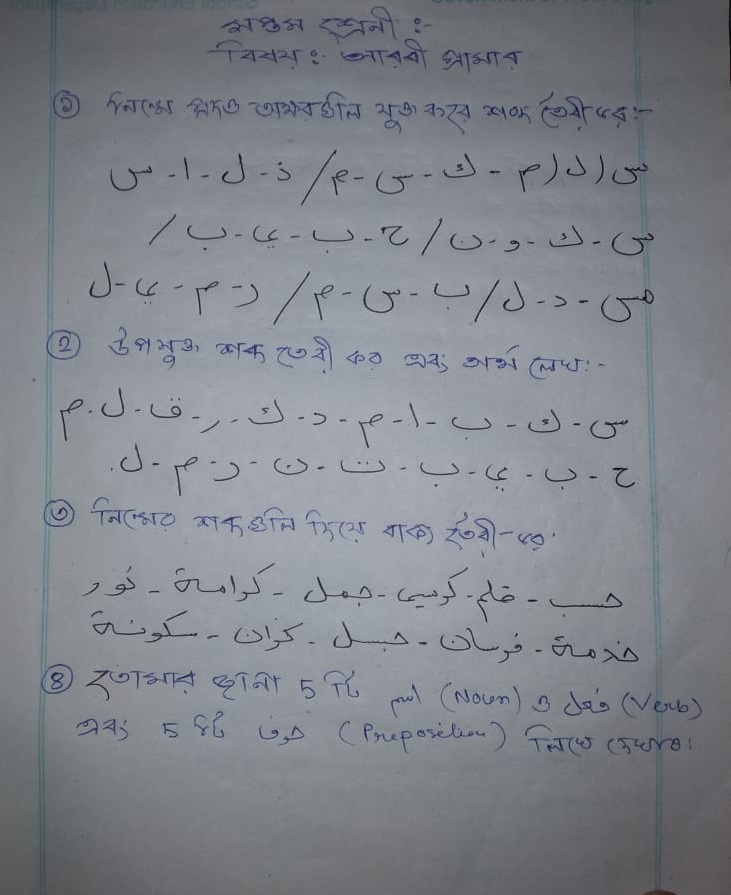 সপ্তম শ্রেনী :-
বিষয় :- আরবী গ্রামার
① নিম্নে প্রদত্ত অক্ষরগুলি যুক্ত করে শব্দ তৈরী কর :-
س / ل / م - ك - س - م / ذ - ل - ا - س
س - ك - و - ن / ح - ب - ي - ب /
ص - د - ل / ب - س - م / ر - م - ي - ل
② উপযুক্ত শব্দ তৈরী কর এবং অর্থ লেখ :-
س - ك - ب - ا - م - د - ك - ر - ق - ل - م
ح - ب - ي - ب - ت - ن - ر - م - ل .
③ নিম্নের শব্দগুলি দিয়ে বাক্য তৈরী কর
حسب - قلم - كرسي - جمل - كرامة - نور
خدمة - فرسان - حبسل - كزان - سكونة
④ তোমার জানা 5 টি اسم (Noun) ও فعل (Verb)
এবং 5 টি حرف (Preposition) লিখে দেখাও।